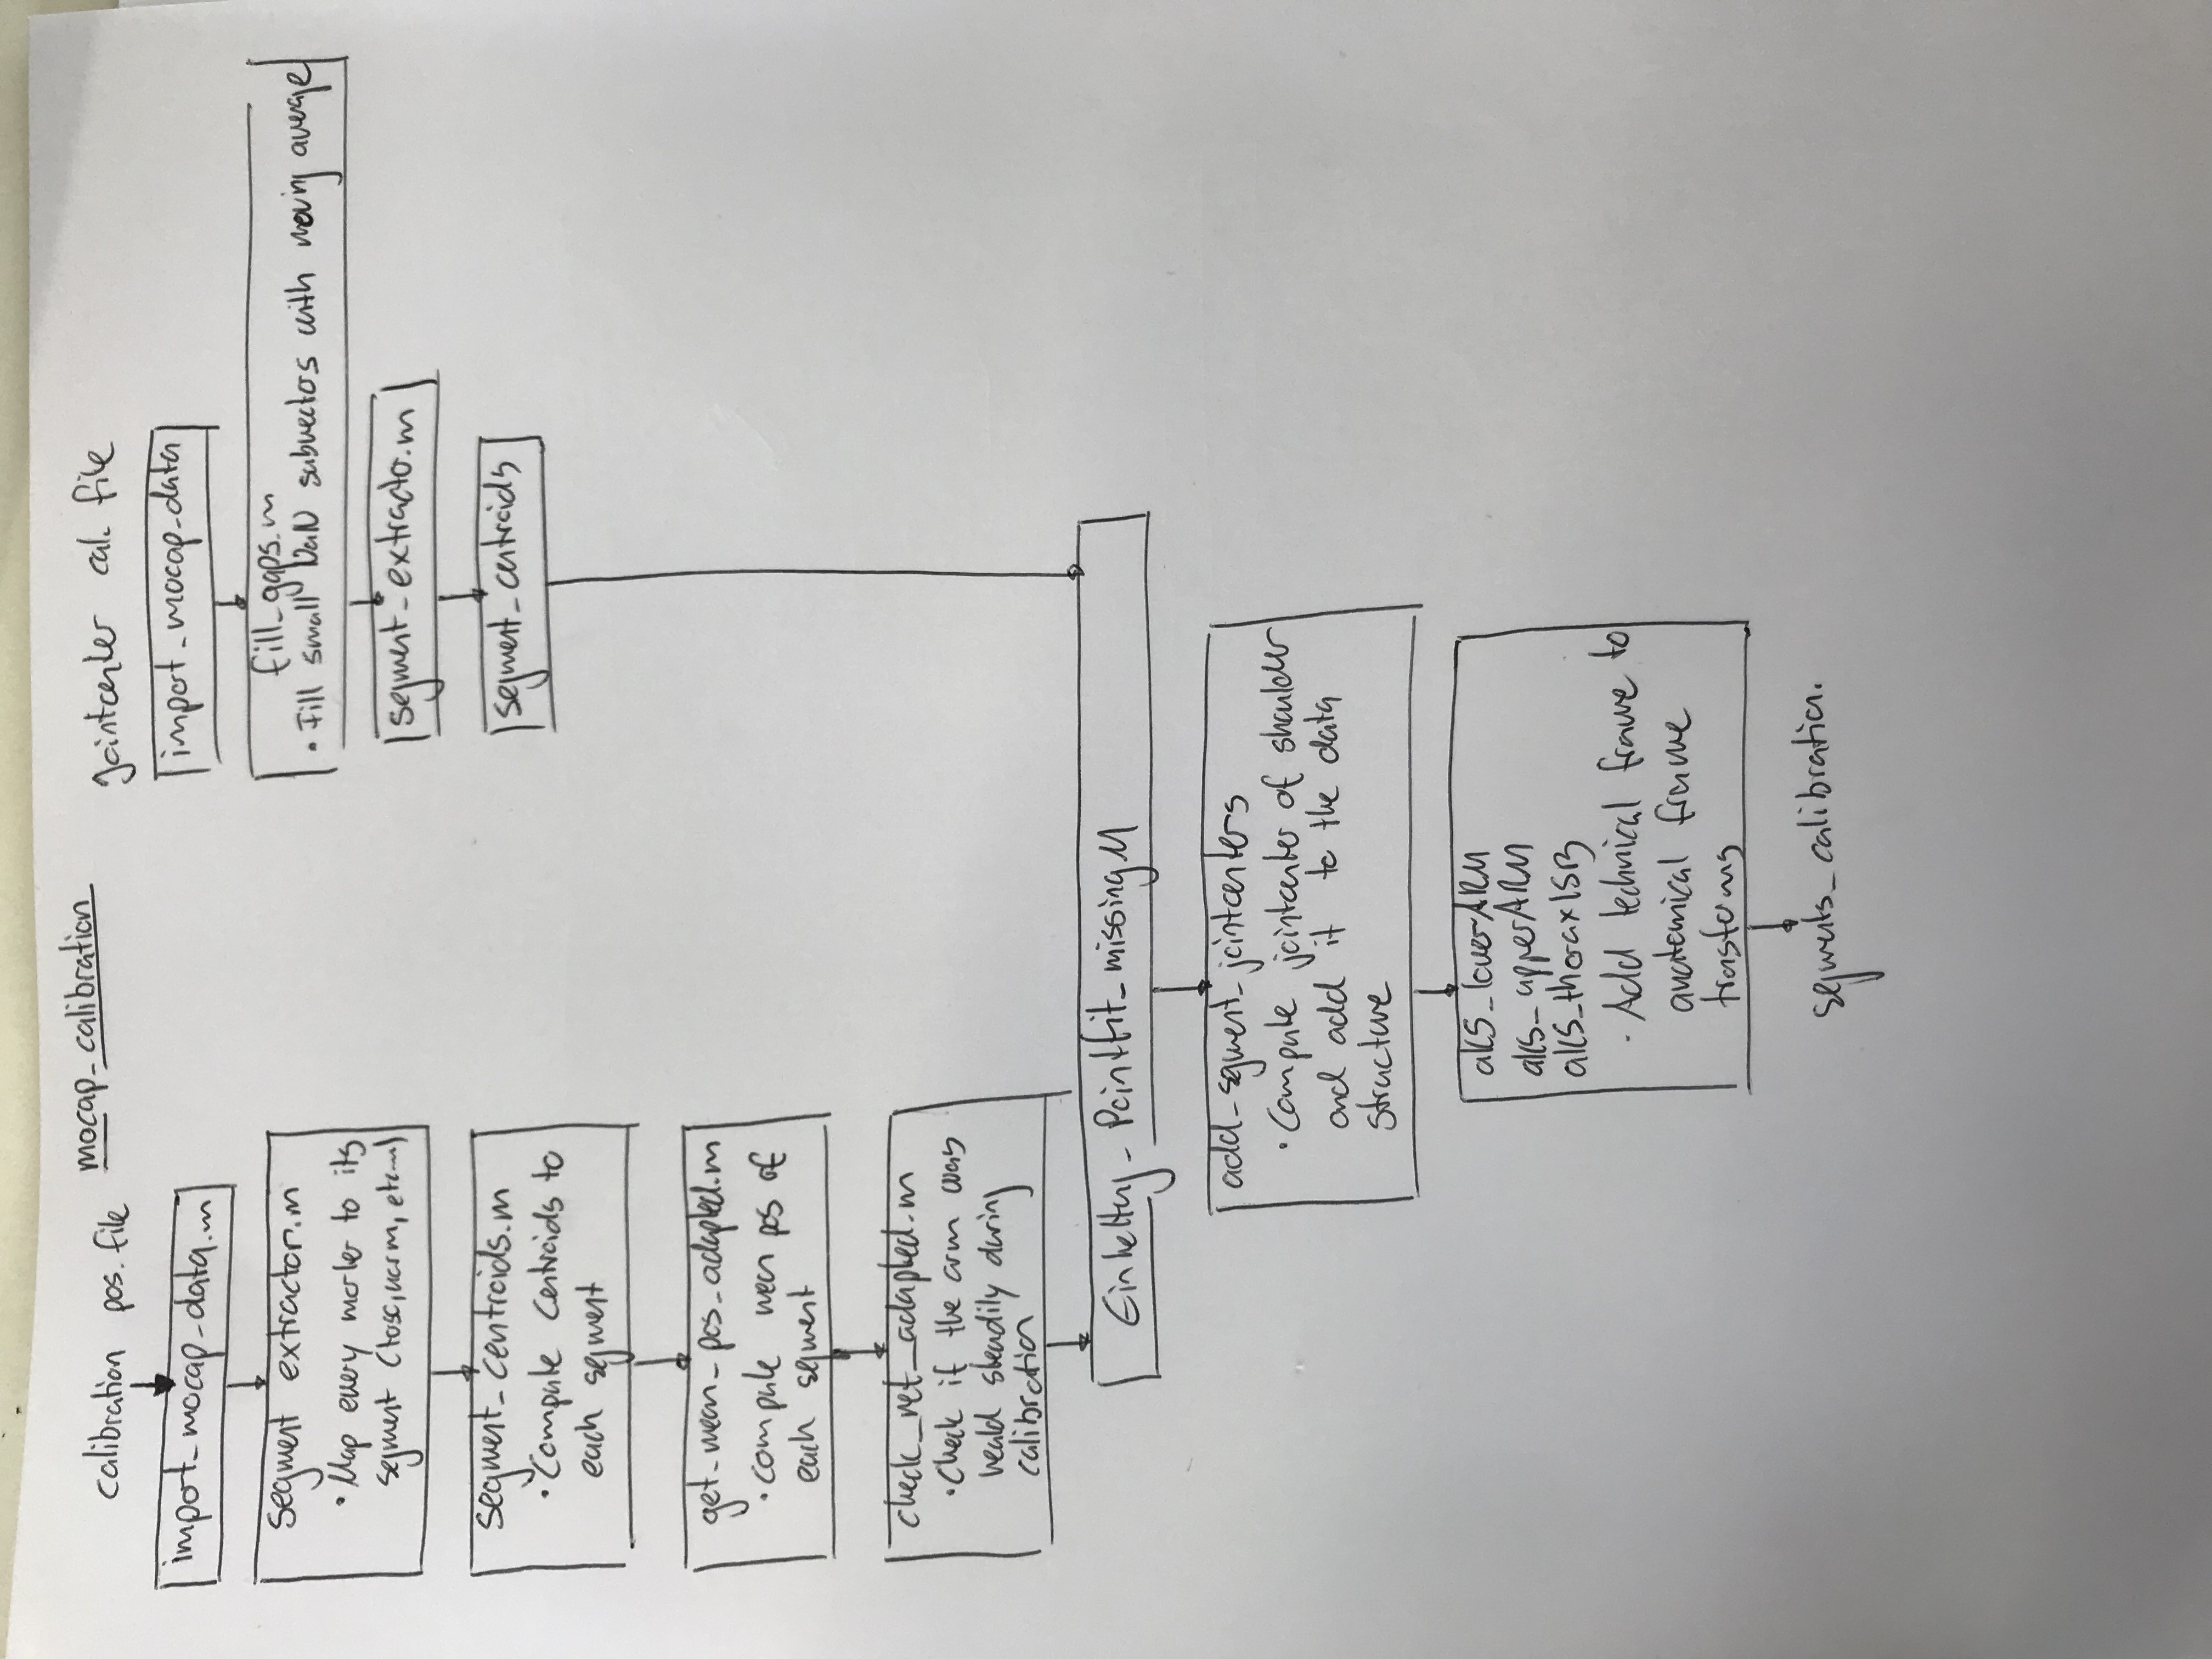 mocap_calibration
calibration pos. file
import_mocap_data.m
segment extractor.m
• Map every marker to its
segment (toso, uarm, etc...)
segment_centroids.m
• Compute Centroids to
each segment
get_mean_pos_adapted.m
• compute mean pos of
each segment
check_ret_adapted.m
• Check if the arm was
heald steadily during
calibration
Jointcenter cal. file
import_mocap_data
fill_gaps.m
• Fill small NaN subvectors with moving average
segment_extracto.m
segment_centroids
Pointfit_missing.M
add_segment_jointcenters
• Compute jointcenter of shoulder
and add it to the data
structure
aKS_lowerARM
aKS_upperARM
aKS_thoraxISB
• Add technical frame to
anatomical frame
trasforms
segments_calibration.